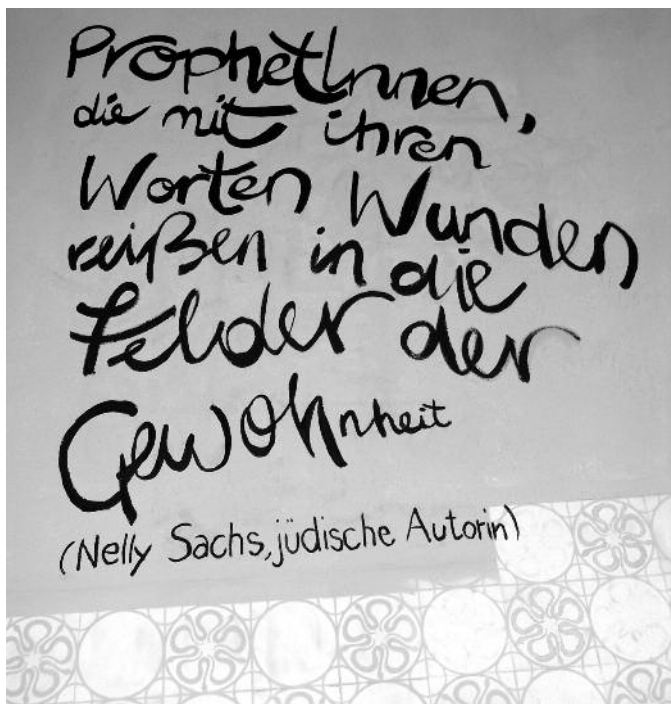 ProphetInnen,
die mit ihren
Worten Wunden
reißen in die
Felder der
Gewohnheit
(Nelly Sachs, jüdische Autorin)